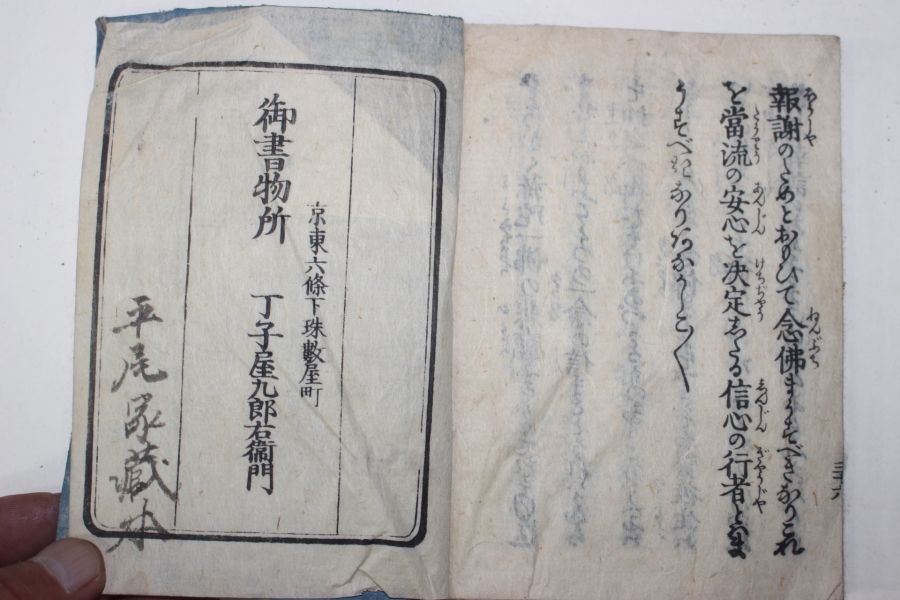 報謝のためとおもひて念佛まうすべきなりこれ
を當流の安心を决定したる信心の行者とはま
うすべきなりあなかしこ〱
京東六條下珠數屋町
御書物所 丁子屋九郎右衞門
平尾家藏本